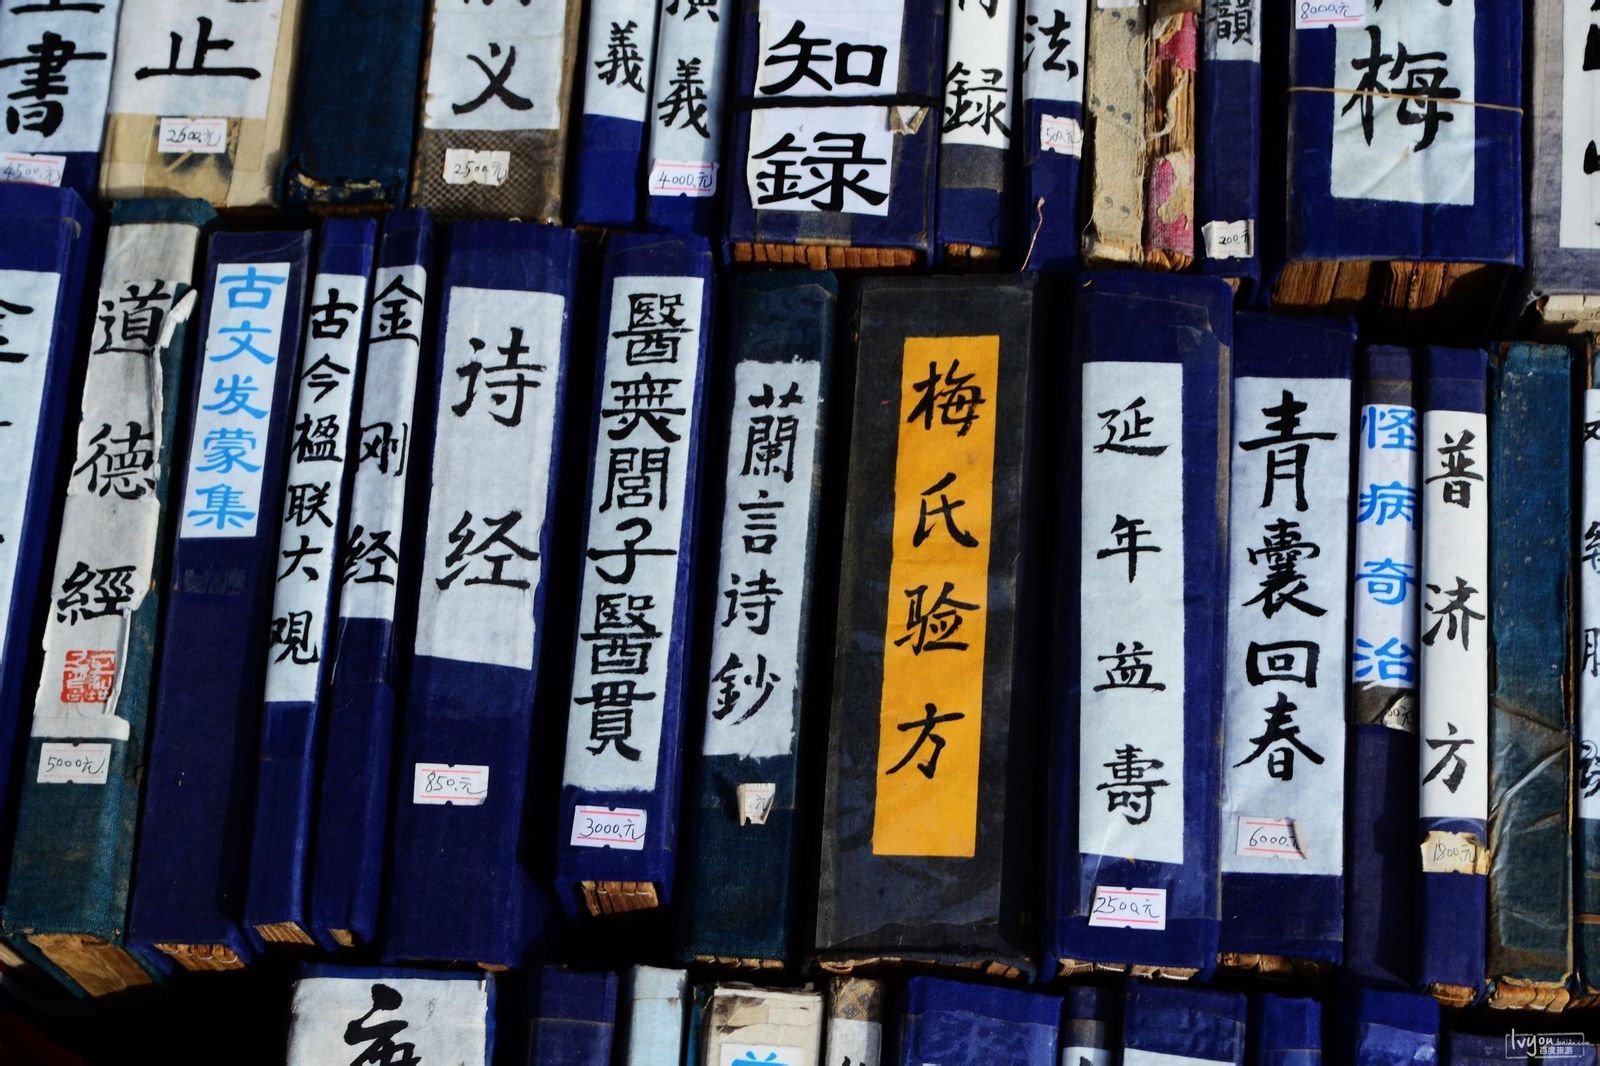 書
4500.元
止
2600.元
义
2500.元
義
演義
4000.元
知
錄
录
法
500.元
韻
200.元
8000.元
梅
道德經
5000元
古文发蒙集
古今楹联大观
金刚经
诗经
850.元
醫無閭子醫貫
3000.元
蘭言诗鈔
元
梅氏验方
延年益壽
2500.元
青囊回春
6000.元
怪病奇治
普济方
1800.元
lvyou.baidu.com
百度旅游